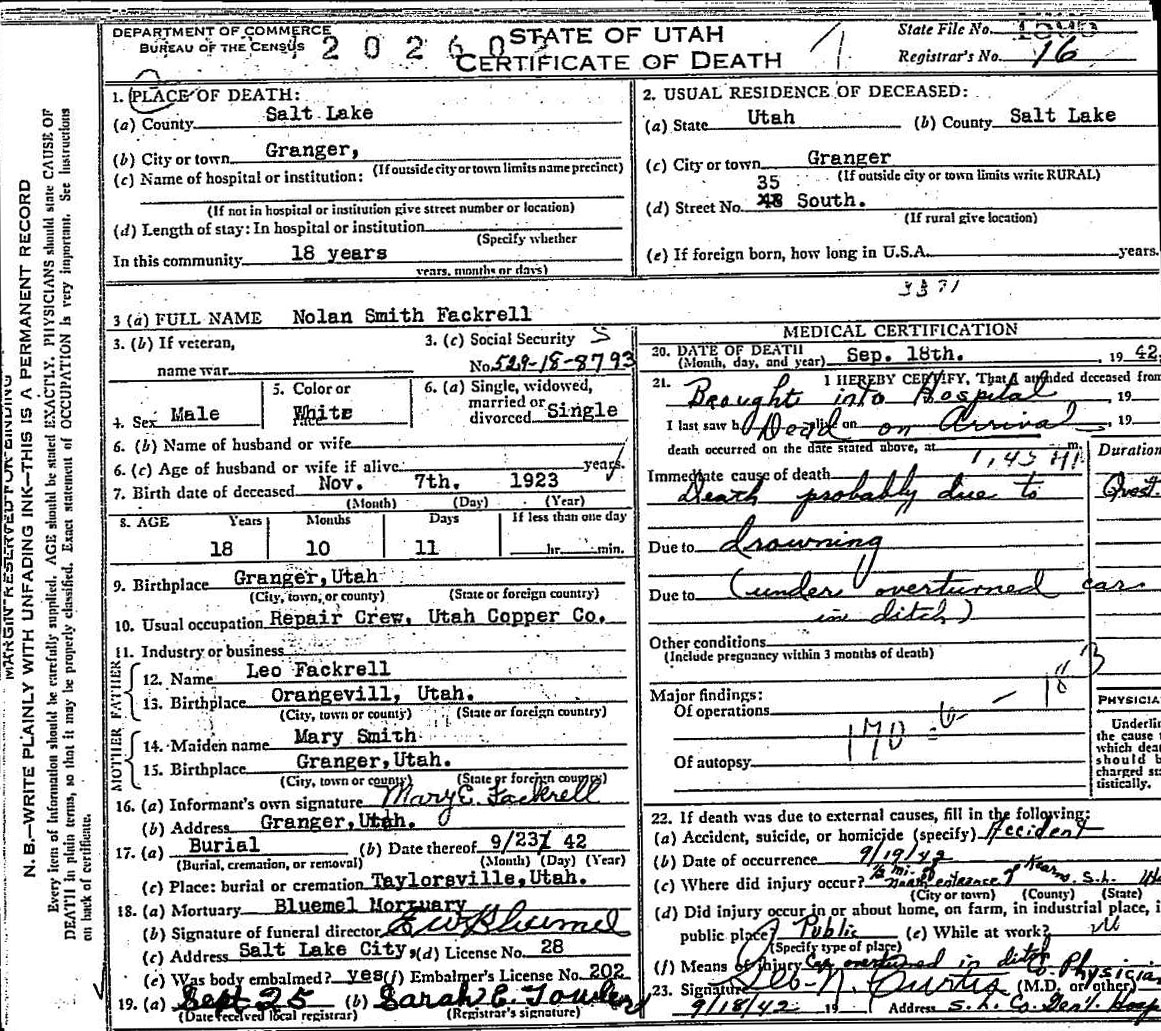 DEPARTMENT OF COMMERCE
BUREAU OF THE CENSUS
2 0 2 6 0
STATE OF UTAH
CERTIFICATE OF DEATH
State File No.
Registrar's No. 16
MARGIN RESERVED FOR BINDING
N. B.—WRITE PLAINLY WITH UNFADING INK—THIS IS A PERMANENT RECORD
Every item of information should be carefully supplied. AGE should be stated EXACTLY. PHYSICIANS should state CAUSE OF
DEATH in plain terms, so that it may be properly classified. Exact statement of OCCUPATION is very important. See instructions
on back of certificate.
1. PLACE OF DEATH:
(a) County Salt Lake
(b) City or town Granger,
(If outside city or town limits name precinct)
(c) Name of hospital or institution:
(If not in hospital or institution give street number or location)
(d) Length of stay: In hospital or institution
(Specify whether
In this community 18 years
years, months or days)
2. USUAL RESIDENCE OF DECEASED:
(a) State Utah (b) County Salt Lake
(c) City or town Granger
(If outside city or town limits write RURAL)
35
(d) Street No. South.
(If rural give location)
(e) If foreign born, how long in U.S.A. years.
3371
3 (a) FULL NAME Nolan Smith Fackrell
3. (b) If veteran,
name war
3. (c) Social Security
No. 529-18-8793
4. Sex Male
5. Color or
Race White
6. (a) Single, widowed,
married or
divorced Single
6. (b) Name of husband or wife
6. (c) Age of husband or wife if alive. years.
7. Birth date of deceased Nov. 7th. 1923
(Month) (Day) (Year)
8. AGE Years Months Days If less than one day
18 10 11 hr. min.
9. Birthplace Granger, Utah
(City, town, or county) (State or foreign country)
10. Usual occupation Repair Crew, Utah Copper Co.
11. Industry or business
FATHER
12. Name Leo Fackrell
13. Birthplace Orangevill, Utah.
(City, town or county) (State or foreign country)
MOTHER
14. Maiden name Mary Smith
15. Birthplace Granger, Utah.
(City, town or county) (State or foreign country)
16. (a) Informant's own signature Mary E. Fackrell
(b) Address Granger, Utah.
17. (a) Burial (b) Date thereof 9/23/ 42
(Burial, cremation, or removal) (Month) (Day) (Year)
(c) Place: burial or cremation Taylorsville, Utah.
18. (a) Mortuary Bluemel Mortuary
(b) Signature of funeral director E W Bluemel
(c) Address Salt Lake City, (d) License No. 28
(e) Was body embalmed? yes (f) Embalmer's License No. 202
19. (a) Sept 25 (b) Sarah E.
(Date received local registrar) (Registrar's signature)
MEDICAL CERTIFICATION
20. DATE OF DEATH
(Month, day, and year) Sep. 18th. 19 42
21. I HEREBY CERTIFY, That I attended deceased from
Brought into Hospital, 19
I last saw h alive on Dead on Arrival, 19
death occurred on the date stated above, at 1:45 m.
Duration
Immediate cause of death
Death probably due to
Due to drowning
Due to (under overturned car
in ditch)
Other conditions
(Include pregnancy within 3 months of death)
Major findings:
Of operations
170
Of autopsy
PHYSICIA
Underlin
the cause
which dea
should b
charged sta
tistically.
22. If death was due to external causes, fill in the following:
(a) Accident, suicide, or homicide (specify) Accident
(b) Date of occurrence 9/19/42
(c) Where did injury occur? north entrance of Kearns S.L.
(City or town) (County) (State)
(d) Did injury occur in or about home, on farm, in industrial place, i
public place? Public (e) While at work?
(Specify type of place)
(f) Means of injury Car overturned in ditch
23. Signature Leo N. Curtis Co. Physician
(M.D. or other)
9/18/42 19 Address S. L. Co. Gen'l. Hosp